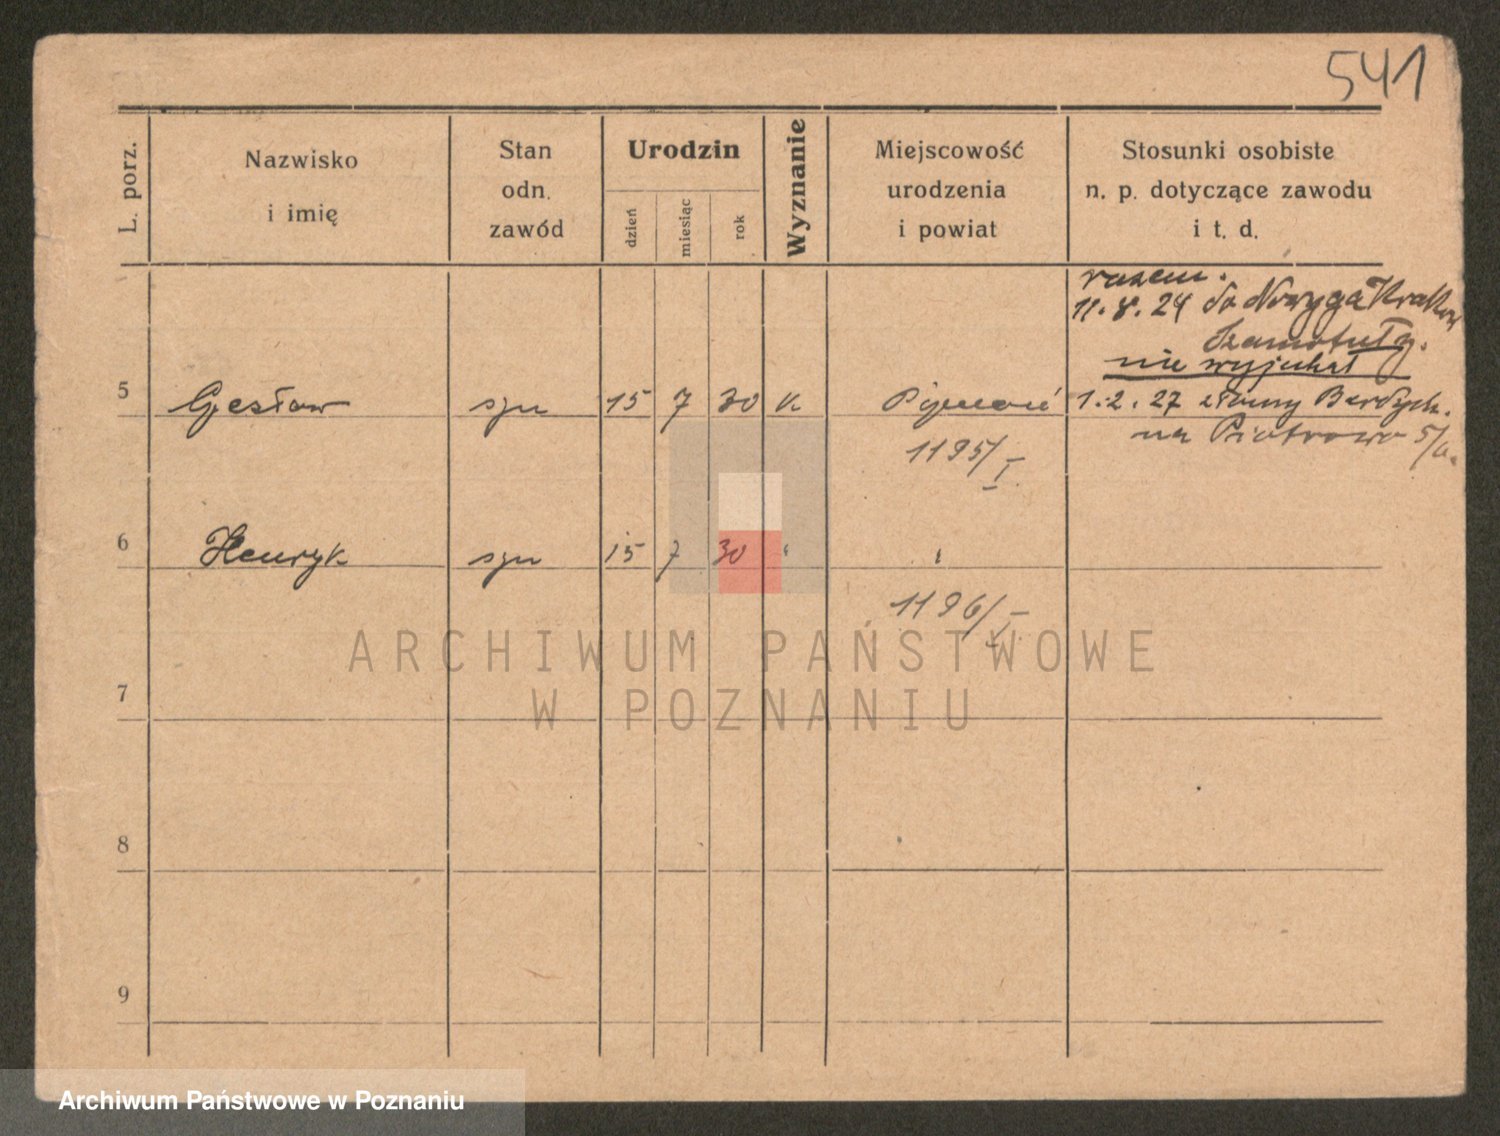 541
L. porz.
Nazwisko
i imię
Stan
odn.
zawód
Urodzin
dzień
miesiąc
rok
Wyznanie
Miejscowość
urodzenia
i powiat
Stosunki osobiste
n. p. dotyczące zawodu
i t. d.
razem.
11.8.24 do
Szamotuły.
nie wyjechał
5 Czesław szn 15 7 30 k 1.2.27
na Piotrowo 5/
1195/I
6 Henryk szn 15 7 30 " "
1196/I
ARCHIWUM PAŃSTWOWE
W POZNANIU
7
8
9
Archiwum Państwowe w Poznaniu